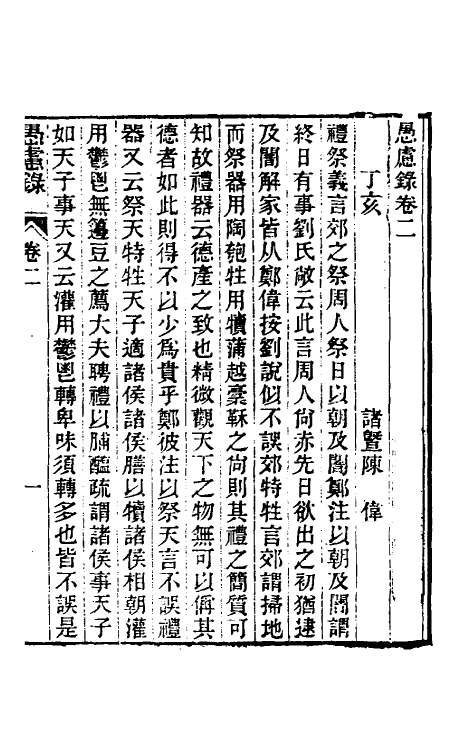 愚慮錄卷二
丁亥　諸暨陳　偉
禮祭義言郊之祭周人祭日以朝及闇鄭注以朝及闇謂
終日有事劉氏敞云此言周人尙赤先日欲出之初猶逮
及闇解家皆从鄭偉按劉說似不誤郊特牲言郊謂掃地
而祭器用陶匏牲用犢蒲越稾秣之尙則其禮之簡質可
知故禮器云德產之致也精微觀天下之物無可以偁其
德者如此則得不以少爲貴乎鄭彼注以祭天言不誤禮
器又云祭天特牲天子適諸侯諸侯膳以犢諸侯相朝灌
用鬱鬯無籩豆之薦大夫聘禮以脯醢疏謂諸侯事天子
如天子事天又云灌用鬱鬯轉卑味須轉多也皆不誤是
愚慮錄　卷二　一